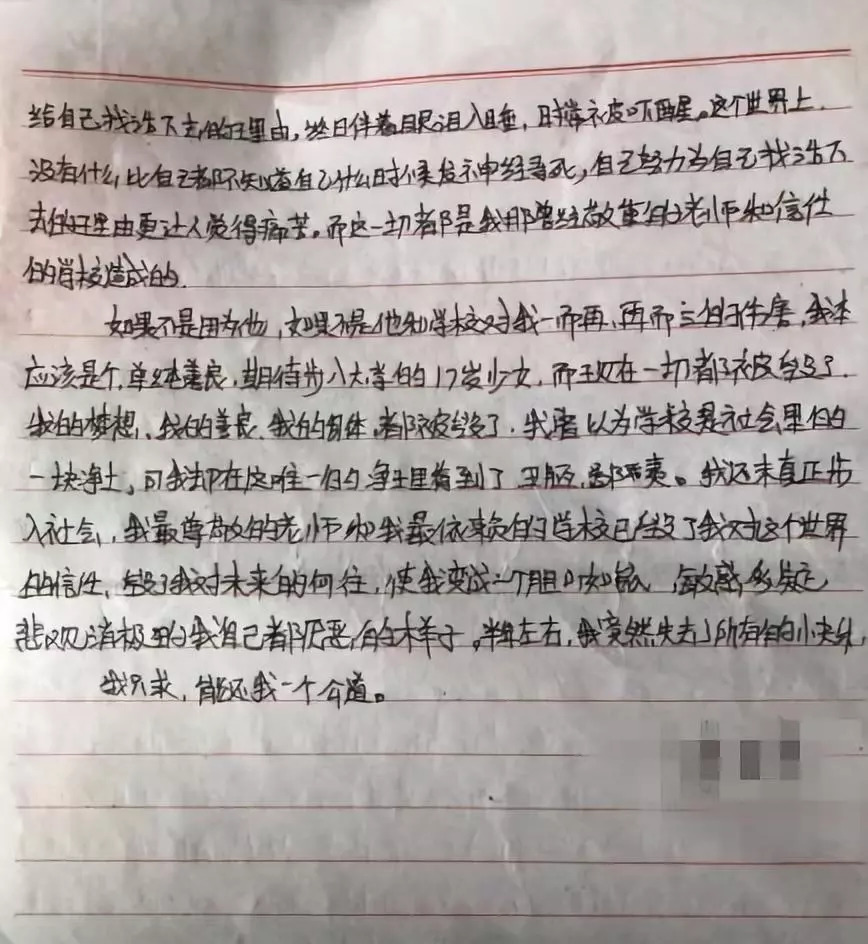 给自己找活下去的理由，终日伴着眼泪入睡，时常被吓醒。这个世界上
没有什么比自己都不知道自己什么时候发神经寻死，自己努力为自己找活下
去的理由更让人觉得痛苦。而这一切都是我那曾经敬重的老师和信任
的学校造成的.
如果不是因为他，如果不是他和学校对我一而再，再而三的伤害，我本
应该是个单纯善良，期待步入大学的17岁少女，而现在一切都被毁了.
我的梦想、我的善良、我的身体，都被毁了.我曾以为学校是社会里的
一块净土，可我却在这唯一的净土里看到了丑陋，鄙夷。我还未真正步
入社会，我最尊敬的老师和我最依赖的学校已毁了我对这个世界
的信任，毁了我对未来的向往，使我变成一个胆小如鼠，敏感多疑
悲观消极的我自己都厌恶的样子。半年左右，我竟然失去了所有的小
我只求，能还我一个公道。